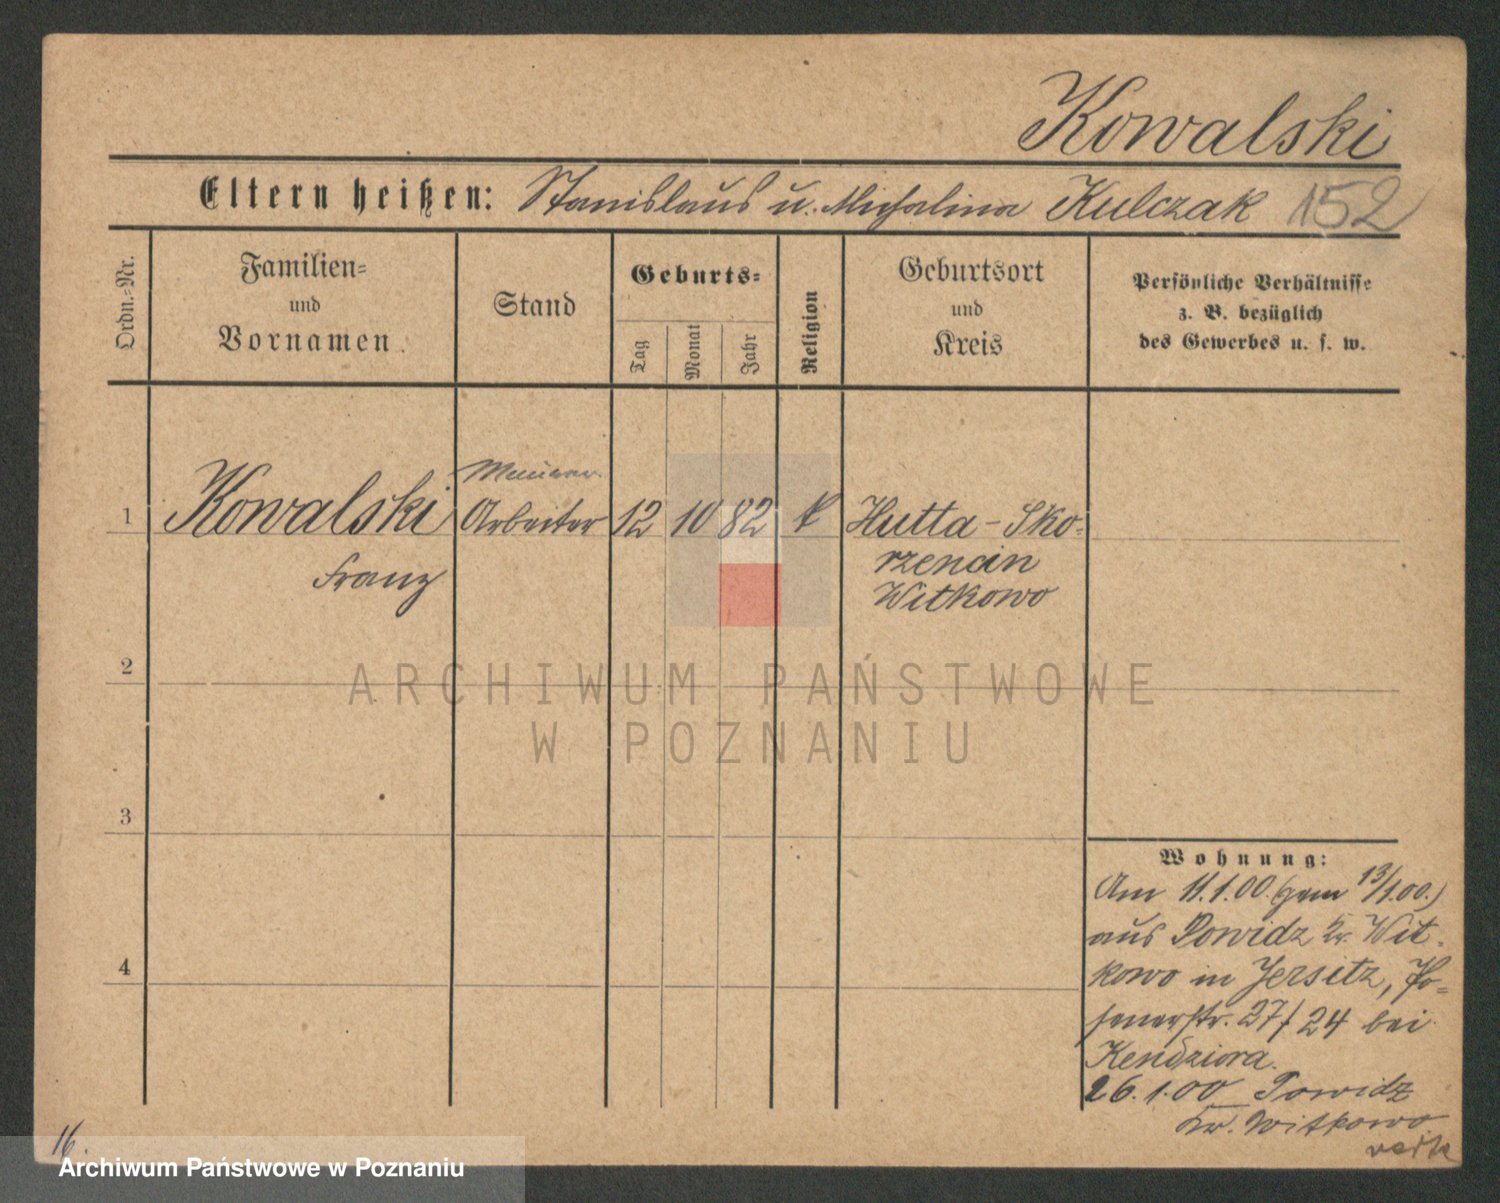 Kowalski
Eltern heißen: Stanislaus u. Michalina Kulczak 152
Ordn.=Nr.
Familien=
und
Vornamen
Stand
Geburts=
Tag
Monat
Jahr
Religion
Geburtsort
und
Kreis
Persönliche Verhältnisse
z. B. bezüglich
des Gewerbes u. s. w.
1 Kowalski Arbeiter 12 10 82 k Hutta-Sko-
rzencin
Franz Witkowo
2
3
4
Wohnung:
Am 11.1.00. (gem 13/1.00.)
aus Powidz Kr. Wit-
kowo in Jersitz, Po=
senerstr. 27/24 bei
Kendziora.
26.1.00 Powidz
Kr. Witkowo
16.
ARCHIWUM PAŃSTWOWE
W POZNANIU
Archiwum Państwowe w Poznaniu